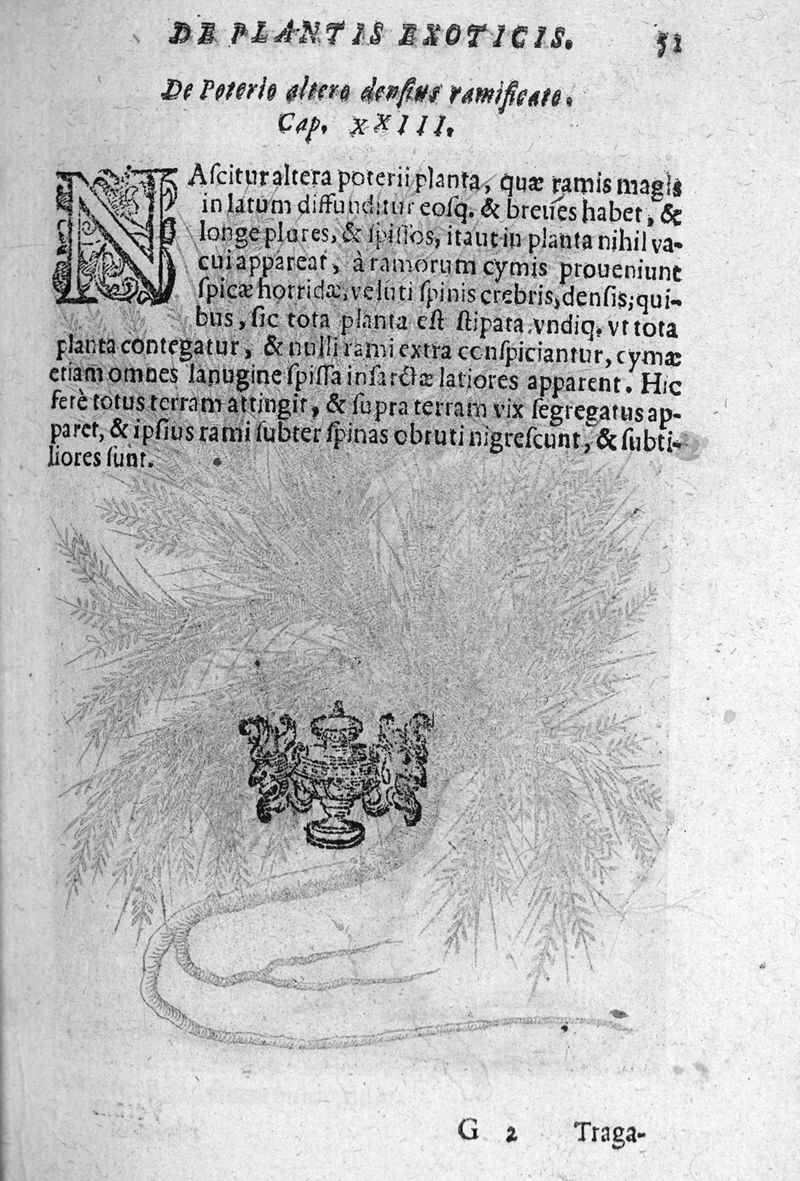 DE PLANTIS EXOTICIS. 51
De Poterio altero densius ramificato.
Cap. XXIII.
NAſcitur altera poterii planta, quæ ramis magis
in latum diffunditur eoſq. & breues habet, &
longe plures, & ſpiſſos, ita ut in planta nihil va-
cui appareat, à ramorum cymis proueniunt
ſpicæ horridæ, veluti ſpinis crebris, denſis, qui-
bus, ſic tota planta eſt ſtipata vndiq. vt tota
planta contegatur, & nulli rami extra conſpiciantur, cymæ
etiam omnes lanugine ſpiſſa infarctæ latiores apparent. Hic
ferè totus terram attingit, & ſupra terram vix ſegregatus ap-
paret, & ipſius rami ſubter ſpinas obruti nigreſcunt, & ſubti-
liores ſunt.
G 2 Traga-